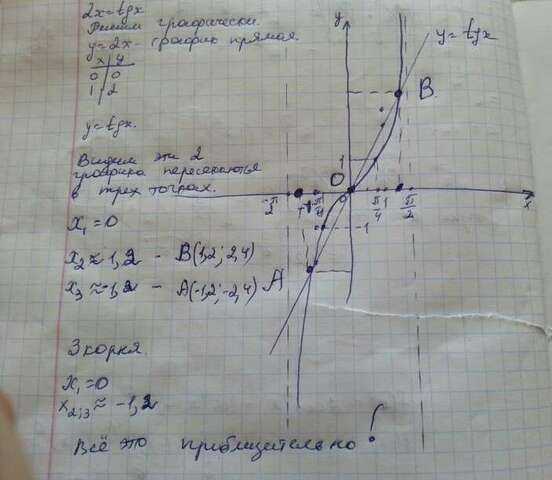 2x=tgx
Решим графически.
y=2x - график прямая.
x | y
0 | 0
1 | 2
y=tgx.
Видим эти 2
графика пересекаються
в трех точках.
x₁=0
x₂≈1,2 - B(1,2; 2,4)
x₃≈-1,2 - A(-1,2; -2,4)
3 корня.
x₁=0
x₂,₃≈-1,2
Всё это приблизительно!
y
y=tgx
B
1
0
O
-π/2
-1
-π/4
π/4
1
π/2
x
-1
A